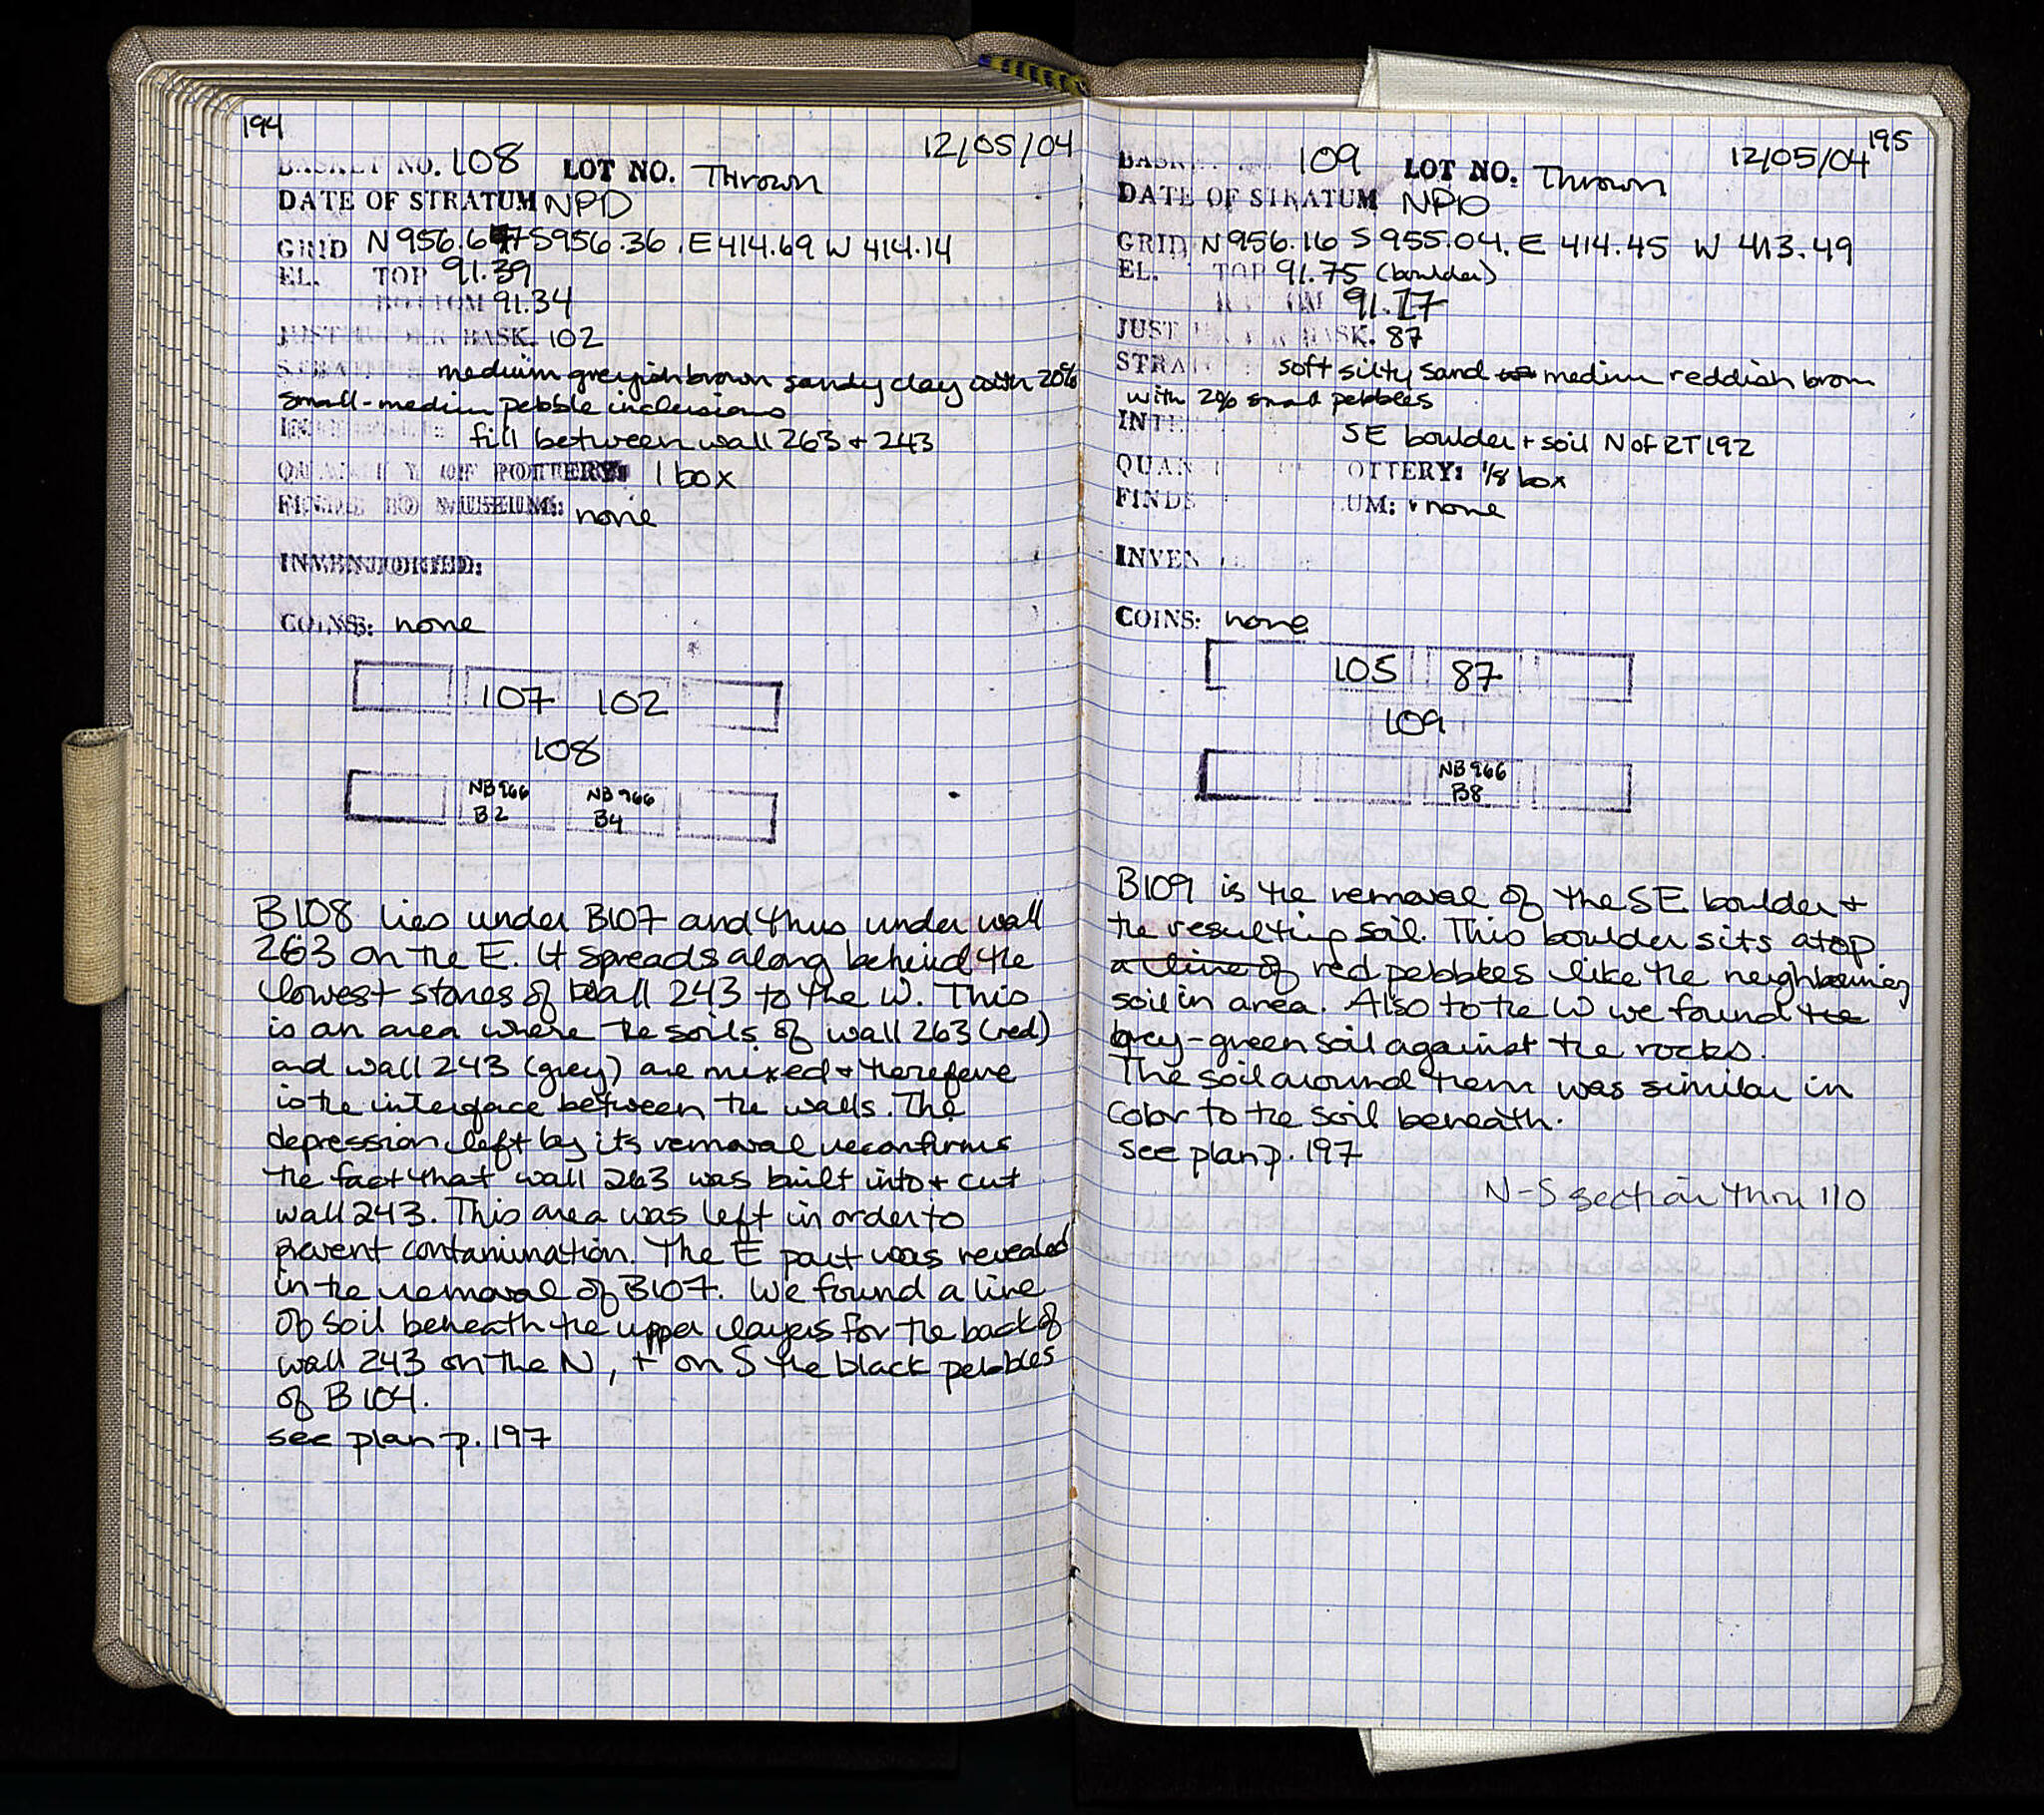 194
12/05/04
BASKET NO. 108 LOT NO. Thrown
DATE OF STRATUM NPD
GRID N 956.67 S956.36 . E414.69 W 414.14
EL. TOP 91.39
BOTTOM 91.34
JUST UNDER BASK. 102
medium greyish brown sandy clay with 20%
small-medium pebble inclusions
fill between wall 263 + 243
QUANTITY OF POTTERY: 1 box
FINDS TO MUSEUM: none
INVENTORIED:
COINS: none
107 102
108
NB 966 NB 966
B2 B4
B108 lies under B107 and thus under wall
263 on the E. It spreads along behind the
lowest stones of wall 243 to the W. This
is an area where the soils of wall 263 (red)
and wall 243 (grey) are mixed + therefore
is the interface between the walls. The
depression left by its removal reconfirms
the fact that wall 263 was built into + cut
wall 243. This area was left in order to
prevent contamination. The E part was revealed
in the removal of B107. We found a line
of soil beneath the upper layers for the back of
wall 243 on the N, + on S the black pebbles
of B104.
see plan p. 197
195
12/05/04
109 LOT NO: Thrown
DATE OF STRATUM NPD
GRID N 956.16 S 955.04. E 414.45 W 413.49
EL. TOP 91.75 (boulder)
91.17
JUST BASK. 87
STRA : soft silty sand medium reddish brown
with 2% small pebbles
INTE SE boulder + soil N of RT192
QUAN OTTERY: 1/8 box
FINDS UM: none
INVEN
COINS: none
105 87
109
NB 966
B8
B109 is the removal of the SE boulder +
the resulting soil. This boulder sits atop
a line of red pebbles like the neighbouring
soil in area. Also to the W we found the
grey-green soil against the rocks.
The soil around them was similar in
color to the soil beneath.
see plan p. 197
N-S section thru 110